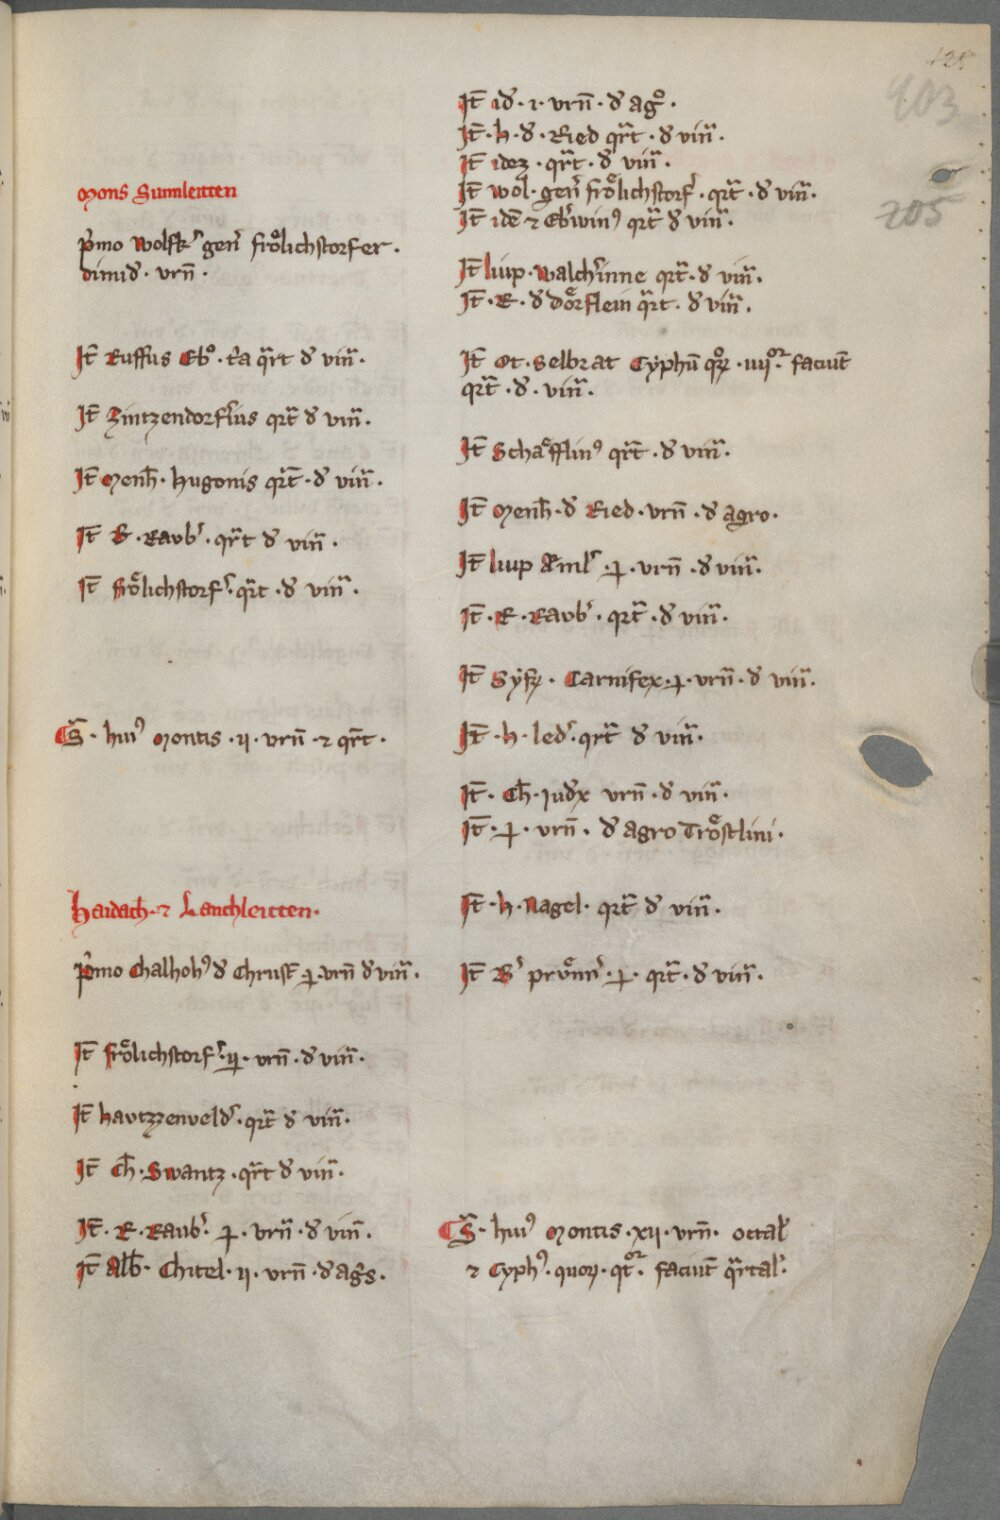 Mons Sumleitten
p͛mo Wolfk͛ gen͛ froͤlichstorfer ·
dimid͛ · vrn̄ ·
It̄ Ruffus Eb͛o · t͛a qᷓrt d͛ vinᷓ ·
It̄ Zintzendorf͛ius qrt̄ d͛ vinᷓ ·
It̄ Menh̄ · hugonis qrt̄ · d͛ vinᷓ ·
It̄ R · Raub͛ · qrᷓt d͛ vinᷓ ·
It̄ froͤlichstorf͛ · qrᷓt · d͛ vinᷓ ·
Sᷓ · hui⁹ Montis · ii · vrn̄ · ⁊ qrt̄ ·
Haidach · ⁊ Lanchleitten ·
p͛mo Chalhoh⁹ d͛ Chrust̄ ꝑ · vrn̄ d͛ vinᷓ ·
It̄ froͤlichstorf͛ · ii · vrn̄ · d͛ vinᷓ ·
It̄ hautzzenueld͛ · qrᷓt d͛ vinᷓ ·
It̄ Ch̄ · Swantz · qrᷓt d͛ vinᷓ ·
It̄ · R · Raub͛ · ꝑ · vrn̄ · d͛ vinᷓ ·
It̄ Alb̄ · Chitel · ii · vrn̄ · d͛ ag͛s ·
125
903
205
It̄ id͛ · i · vrn̄ · d͛ agͦ ·
It̄ · h · d͛ · Ried qrᷓt · d͛ vinᷓ ·
It̄ idez · qrᷓt · d͛ vinᷓ ·
It̄ Wol · gen͛ froͤlichstorf͛ · qrᷓt · d͛ vinᷓ ·
It̄ idē ⁊ Eb͛win⁹ qrᷓt d͛ vinᷓ ·
It̄ liup · Walch͛inne qrᷓt · d͛ vinᷓ ·
It̄ · R · d͛ doͤrflein qᷓrt · d͛ vinᷓ ·
It̄ Ot · Selbrat Cyphū qͦꝝ · iiijͦʳ faciūt
qrᷓt · d͛ · vinᷓ ·
It̄ Schaͤfflin⁹ qrᷓt · d͛ vinᷓ ·
It̄ Menh̄ · d͛ Ried · vrn̄ · d͛ agro ·
It̄ liup Aml͛ · ꝑ · vrn̄ · d͛ vinᷓ ·
It̄ · R · Raub͛ · qrᷓt · d͛ vinᷓ ·
It̄ Syfꝝ · Carnifex · ꝑ · vrn̄ · d͛ vinᷓ ·
It̄ · h · led͛ · qrᷓt d͛ vinᷓ ·
It̄ · Ch̄ · iud͛x vrn̄ · d͛ vinᷓ ·
It̄ · ꝑ · vrn̄ · d͛ agro Troͤstlini ·
It̄ · h · Nagel · qrᷓt d͛ vinᷓ ·
It̄ B͛ pruͦnn͛ · ꝑ · qrᷓt · d͛ vinᷓ ·
Sᷓ · hui⁹ Montis · xii · vrn̄ · octal͛
⁊ Cyph⁹ · quoꝝ · qtͦʳ · faciūt qᷓrtal͛ ·